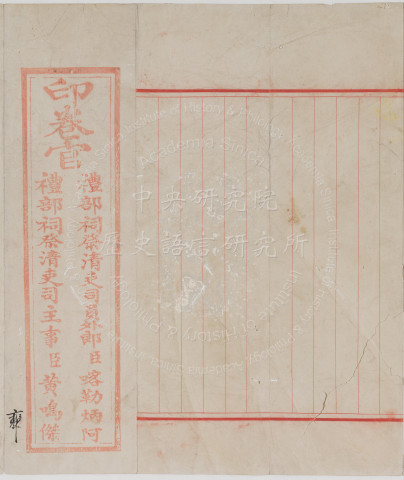 印卷官
禮部祠祭清吏司員外郎臣喀勒炳阿
禮部祠祭清吏司主事臣黃鳴傑
中央研究院
歷史語言研究所
Academia Sinica